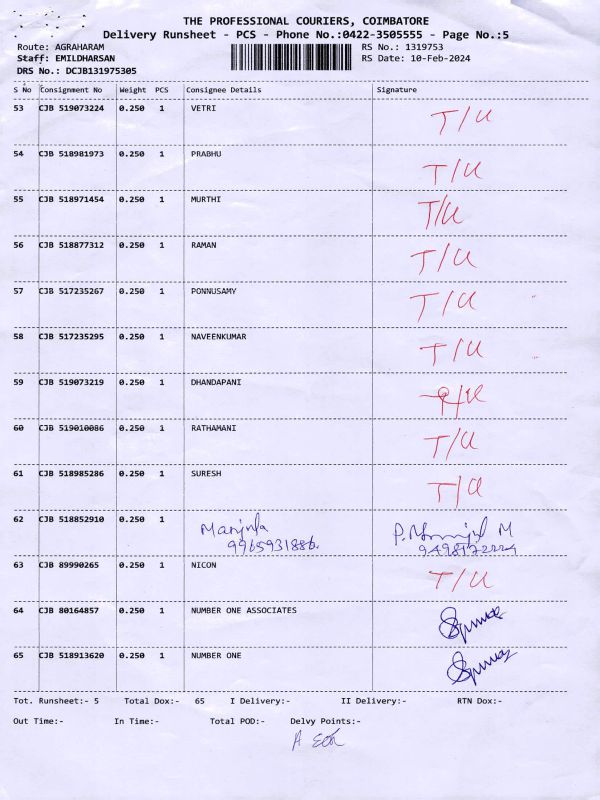 THE PROFESSIONAL COURIERS, COIMBATORE
Delivery Runsheet - PCS - Phone No.:0422-3505555 - Page No.:5
Route: AGRAHARAM RS No.: 1319753
Staff: EMILDHARSAN RS Date: 10-Feb-2024
DRS No.: DCJB131975305
S No Consignment No Weight PCS Consignee Details Signature
53 CJB 519073224 0.250 1 VETRI T/U
54 CJB 518981973 0.250 1 PRABHU T/U
55 CJB 518971454 0.250 1 MURTHI T/U
56 CJB 518877312 0.250 1 RAMAN T/U
57 CJB 517235267 0.250 1 PONNUSAMY T/U
58 CJB 517235295 0.250 1 NAVEENKUMAR T/U
59 CJB 519073219 0.250 1 DHANDAPANI
60 CJB 519010086 0.250 1 RATHAMANI T/U
61 CJB 518985286 0.250 1 SURESH T/U
62 CJB 518852910 0.250 1 Manjula
9965931886.
63 CJB 89990265 0.250 1 NICON T/U
64 CJB 80164857 0.250 1 NUMBER ONE ASSOCIATES
65 CJB 518913620 0.250 1 NUMBER ONE
Tot. Runsheet:- 5 Total Dox:- 65 I Delivery:- II Delivery:- RTN Dox:-
Out Time:- In Time:- Total POD:- Delvy Points:-